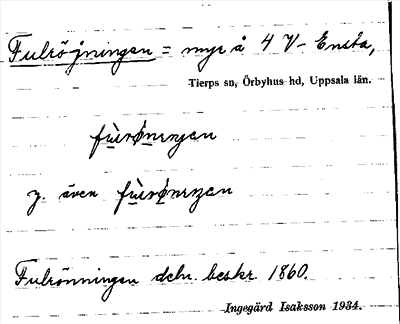 Fulröjningen = myr å 4 V- Ensta,
Tierps sn, Örbyhus hd, Uppsala län.
y. även
Fulrönningen debr. beskr. 1860.
Ingegärd Isaksson 1934.